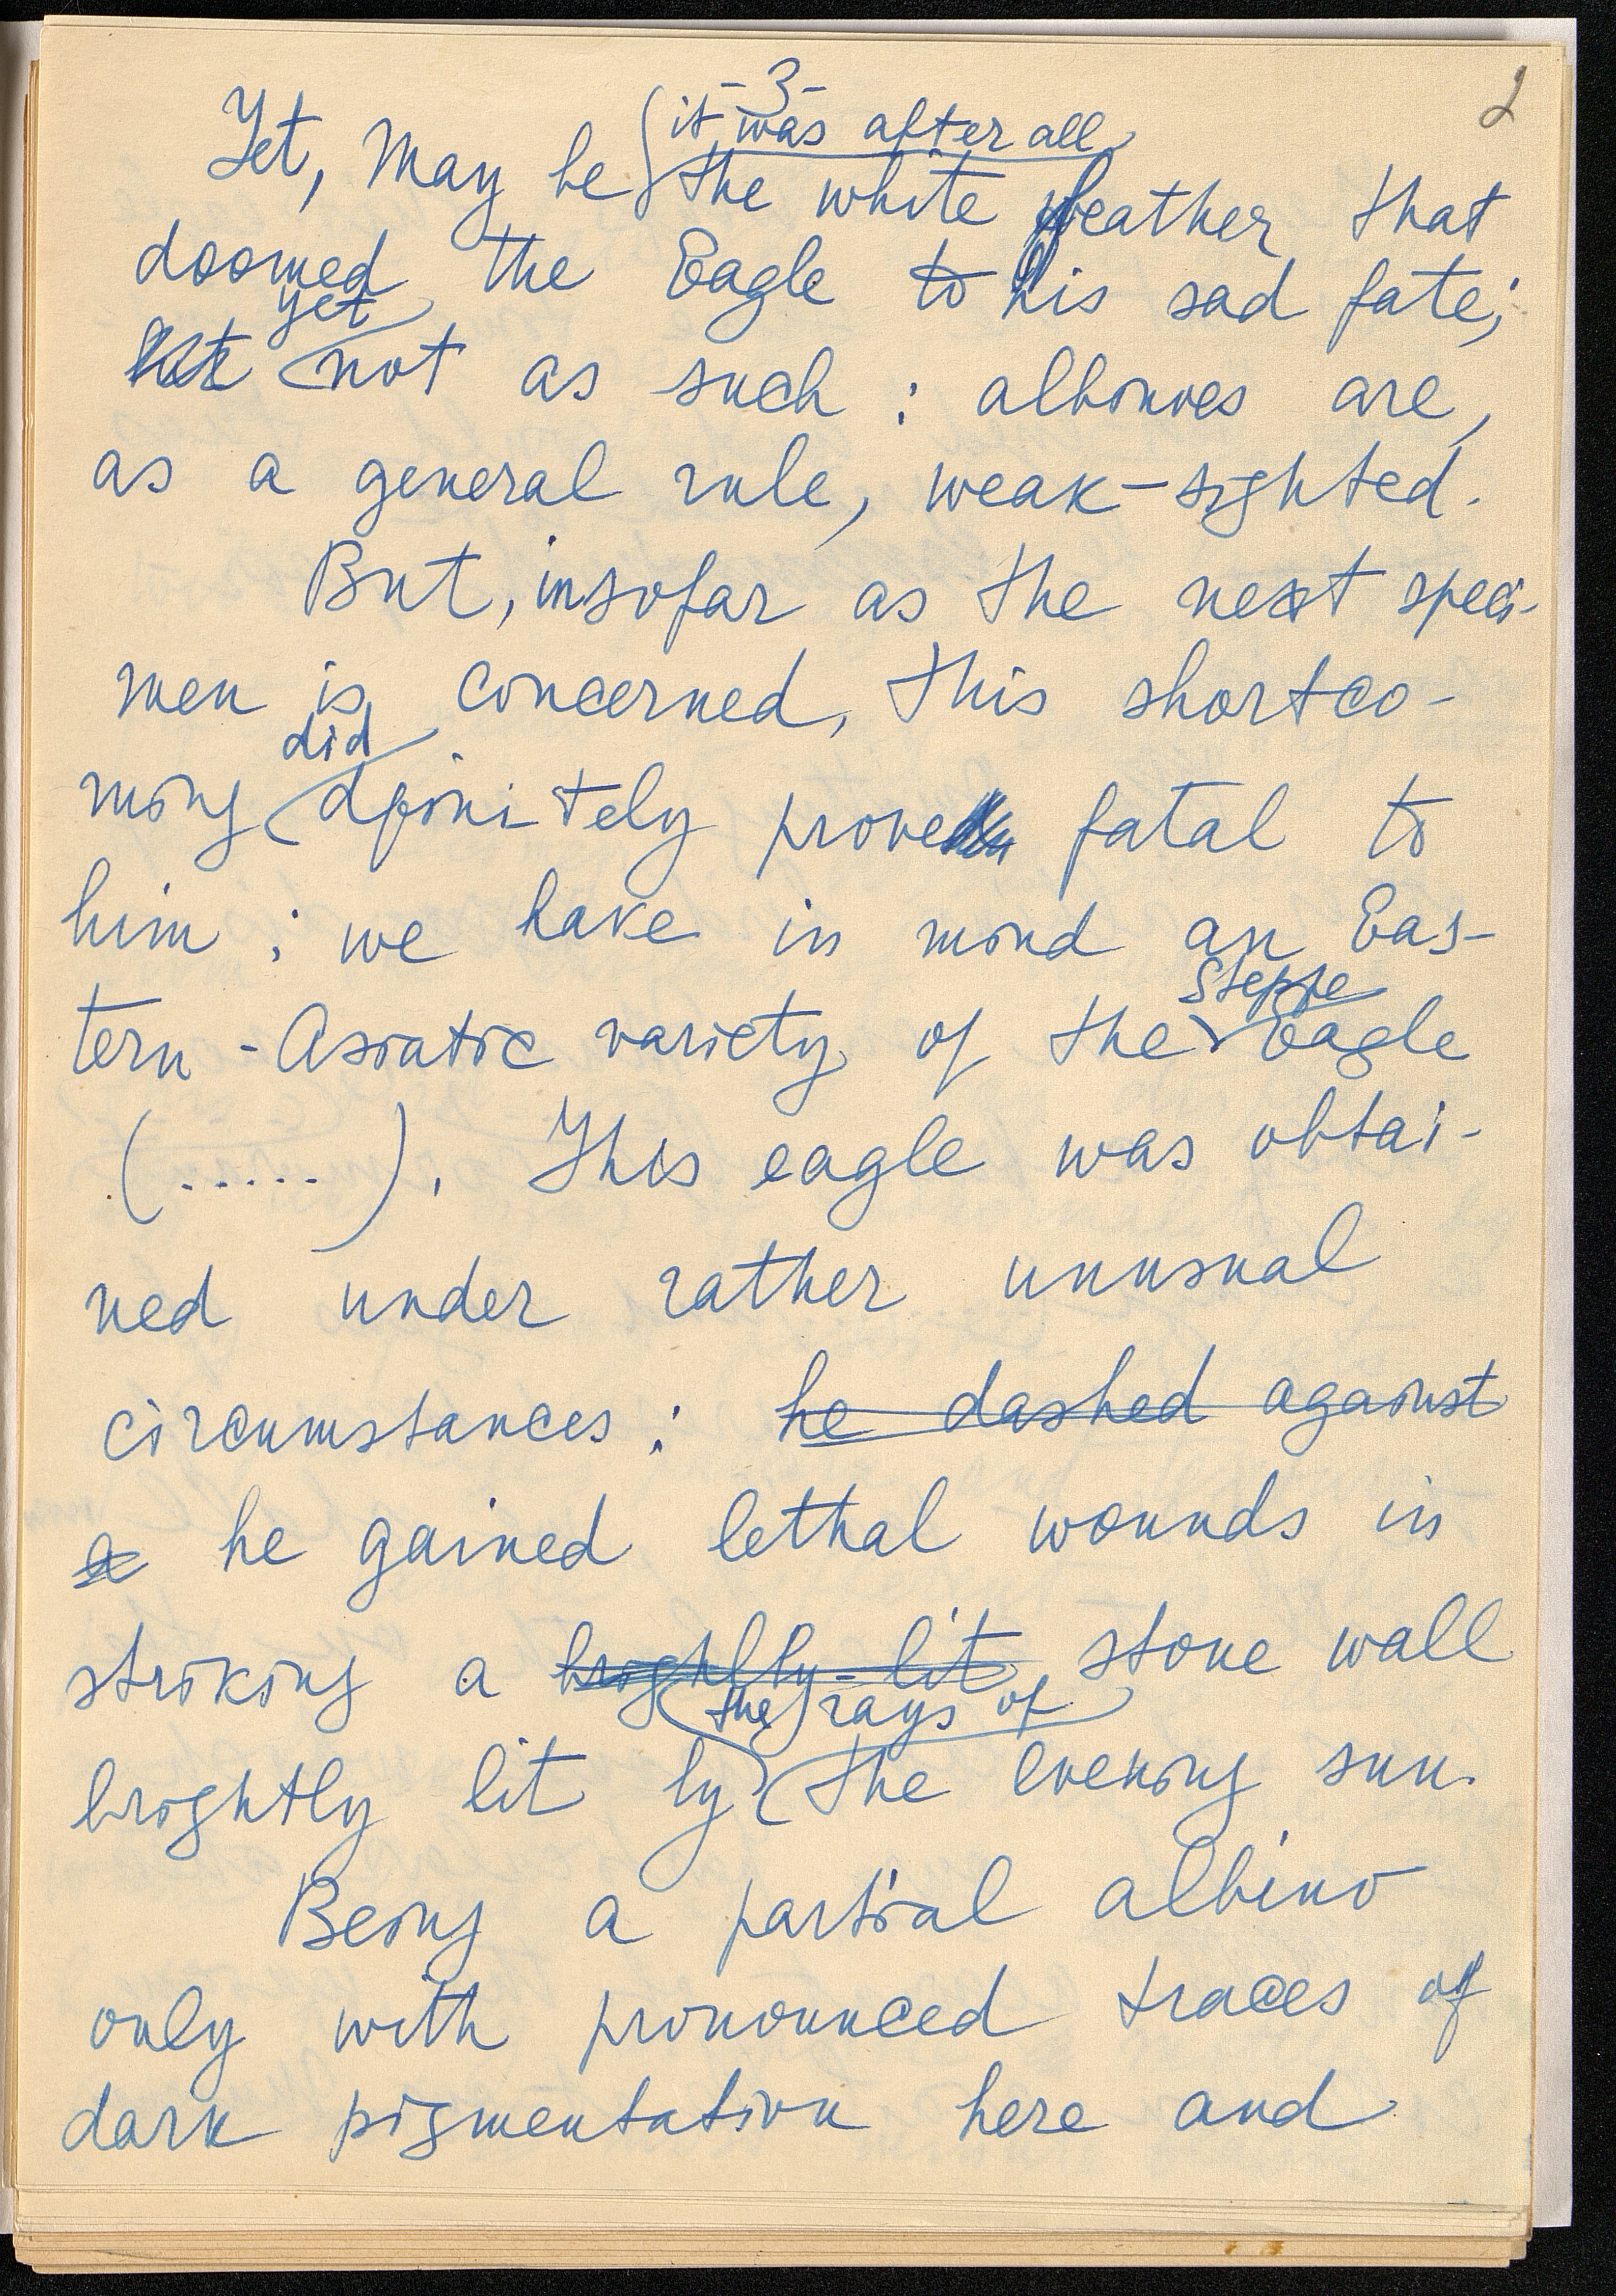 -3-
2
it was after all
Yet, May be the white feather that
doomed the Eagle to his sad fate;
yet
but not as such : albinoes are,
as a general rule, weak-sighted.
But, insofar as the next speci-
men is concerned, this shortco-
did
ming definitely prove fatal to
him : we have in mind an Eas-
Steppe
tern - Asiatic variety of the Eagle
(......). This eagle was obtai-
ned under rather unusual
circumstances : he dashed against
a he gained lethal wounds in
striking a brightly-lit stone wall
the rays of
brightly lit by the evening sun.
Being a partial albino
only with pronounced traces of
dark pigmentation here and